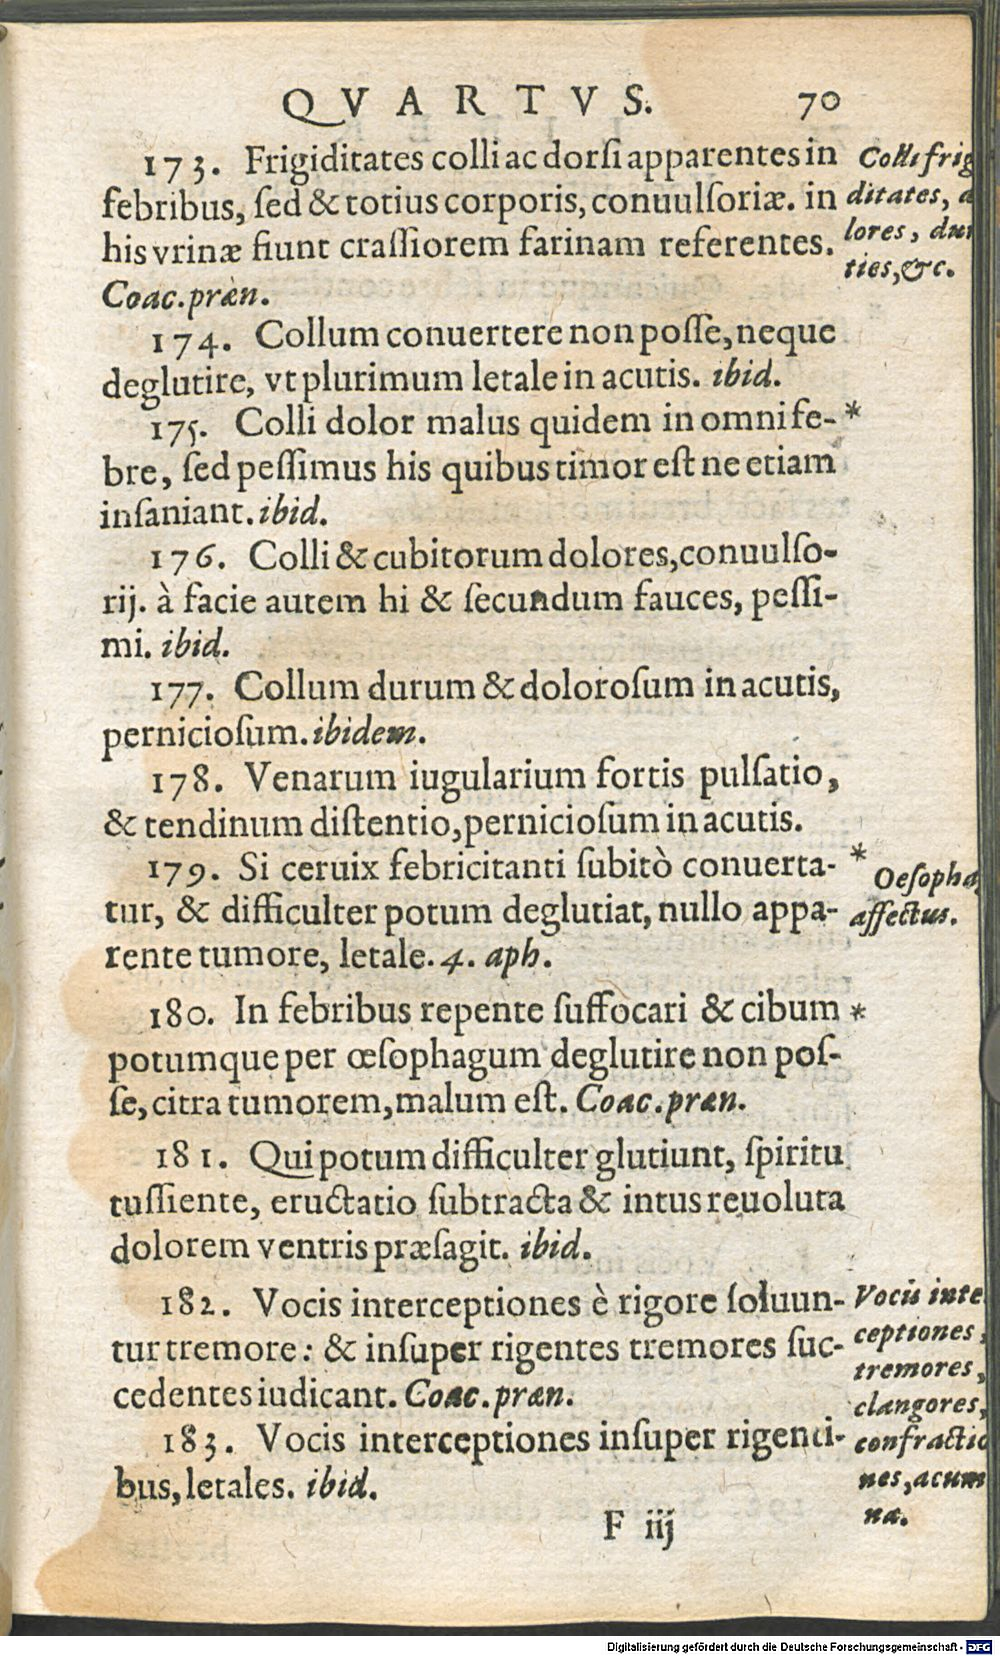 QVARTVS. 70
173. Frigiditates colli ac dorsi apparentes in
febribus, sed & totius corporis, conuulsoriæ. in
his vrinæ fiunt crassiorem farinam referentes.
Coac. præn.
174. Collum conuertere non posse, neque
deglutire, vt plurimum letale in acutis. ibid.
175. Colli dolor malus quidem in omni fe- *
bre, sed pessimus his quibus timor est ne etiam
insaniant. ibid.
176. Colli & cubitorum dolores, conuulso-
rij. à facie autem hi & secundum fauces, pessi-
mi. ibid.
177. Collum durum & dolorosum in acutis,
perniciosum. ibidem.
178. Venarum iugularium fortis pulsatio,
& tendinum distentio, perniciosum in acutis.
179. Si ceruix febricitanti subitò conuerta- *
tur, & difficulter potum deglutiat, nullo appa-
rente tumore, letale. 4. aph.
180. In febribus repente suffocari & cibum *
potumque per œsophagum deglutire non pos-
se, citra tumorem, malum est. Coac. præn.
181. Qui potum difficulter glutiunt, spiritu
tussiente, eructatio subtracta & intus reuoluta
dolorem ventris præsagit. ibid.
182. Vocis interceptiones è rigore soluun-
tur tremore: & insuper rigentes tremores suc-
cedentes iudicant. Coac. præn.
183. Vocis interceptiones insuper rigenti-
bus, letales. ibid.
F iij
Colli frig
ditates,
lores, dur
ties, &c.
Oesopha
affectus.
Vocis inte
ceptiones,
tremores,
clangores,
confractio
nes, acum
na.
Digitalisierung gefördert durch die Deutsche Forschungsgemeinschaft - DFG